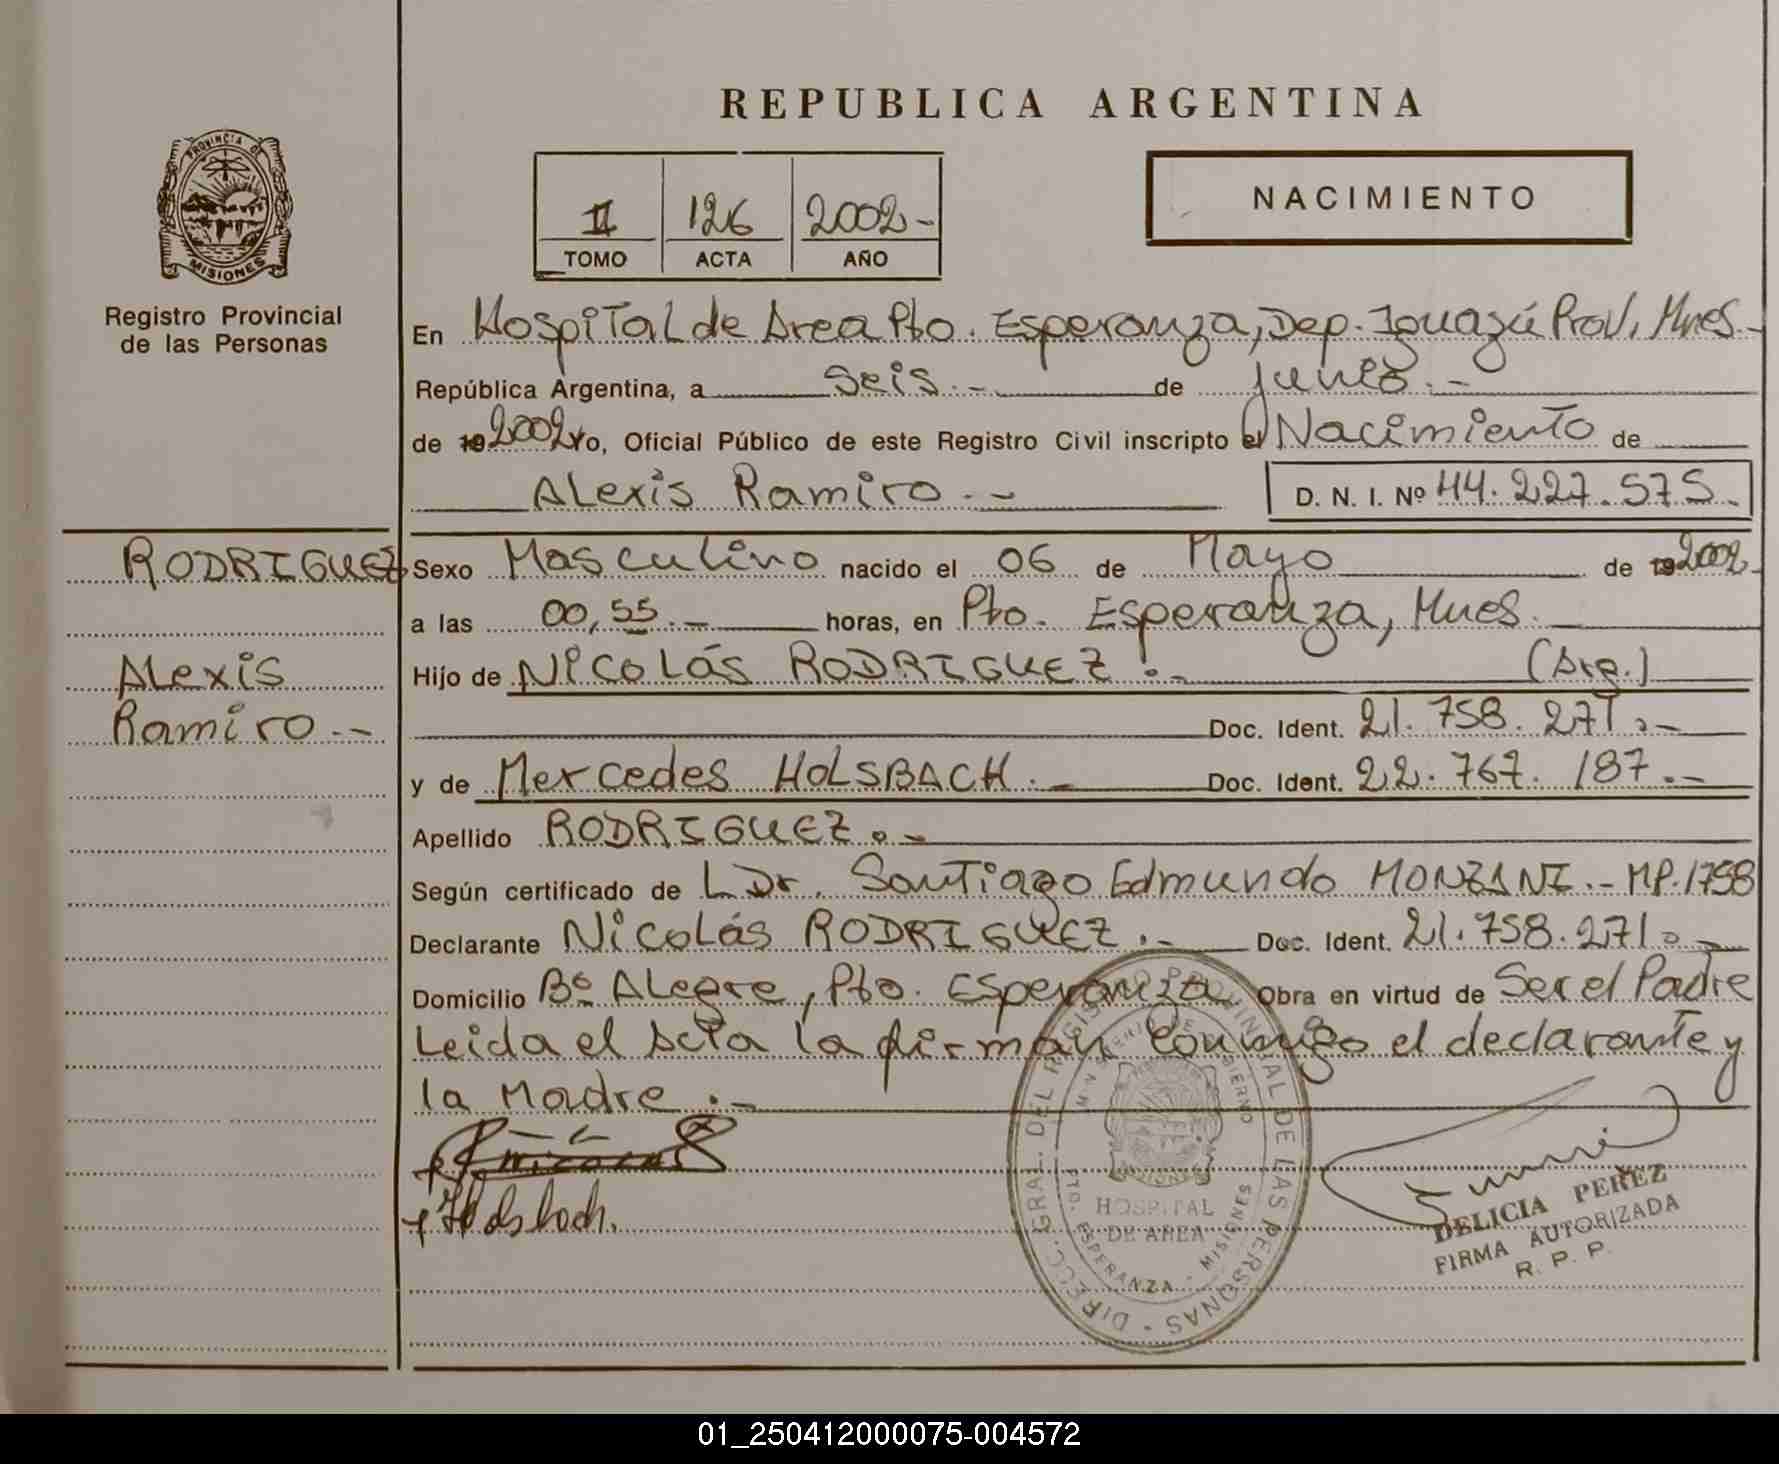 REPUBLICA ARGENTINA
PROVINCIA DE
MISIONES
Registro Provincial
de las Personas
II 126 2002-
TOMO ACTA AÑO
NACIMIENTO
En Hospital de Area Pto. Esperanza, Dep. Iguazú Prov. Mnes.-
República Argentina, a Seis.- de junio.-
de 19 2002 Yo, Oficial Público de este Registro Civil inscripto el Nacimiento de
Alexis Ramiro.- D. N. I. Nº 44.227.575.-
RODRIGUEZ
Alexis
Ramiro.-
Sexo Masculino nacido el 06 de Mayo de 19 2002-
a las 00,55.- horas, en Pto. Esperanza, Mnes.
Hijo de Nicolás RODRIGUEZ.- (Arg.)
Doc. Ident. 21.758.271.-
y de Mercedes HOLSBACH.- Doc. Ident. 22.767.187.-
Apellido RODRIGUEZ.-
Según certificado de L Dr. Santiago Edmundo MONZANI.- MP.1758
Declarante Nicolás RODRIGUEZ.- Doc. Ident. 21.758.271.-
Domicilio Bº Alegre, Pto. Esperanza, Obra en virtud de Ser el Padre
Leida el Acta la firman conmigo el declarante y
la Madre.-
Holsbach.
DIRECC. GRAL. DEL REGISTRO PROVINCIAL DE LAS PERSONAS
MINISTERIO DE GOBIERNO
MISIONES
HOSPITAL
DE AREA
PTO. ESPERANZA - MISIONES
DELICIA PEREZ
FIRMA AUTORIZADA
R. P. P.
01_250412000075-004572